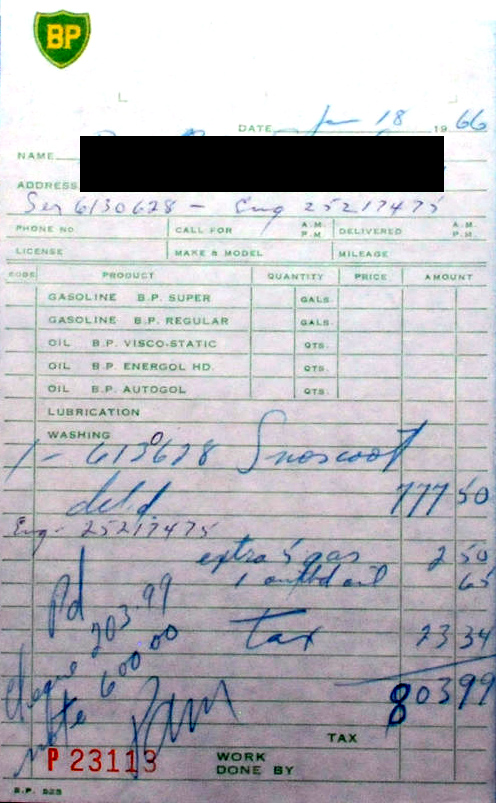 BP
DATE Jan 18 1966
NAME
ADDRESS
Ser 6130628 - Eng 25217475
PHONE NO CALL FOR A.M. P.M. DELIVERED A.M. P.M.
LICENSE MAKE & MODEL MILEAGE
CODE PRODUCT QUANTITY PRICE AMOUNT
GASOLINE B.P. SUPER GALS.
GASOLINE B.P. REGULAR GALS.
OIL B.P. VISCO-STATIC QTS.
OIL B.P. ENERGOL HD. QTS.
OIL B.P. AUTOGOL QTS.
LUBRICATION
WASHING
1 - 6130628 Snoscoot
del'd 777 50
Eng - 25217475
extra 5 gas 2 50
1 outbd oil 65
Pd
tax 23 34
cheque 203.99
note 600.00
803 99
TAX
P 23113 WORK DONE BY
B.P. 525